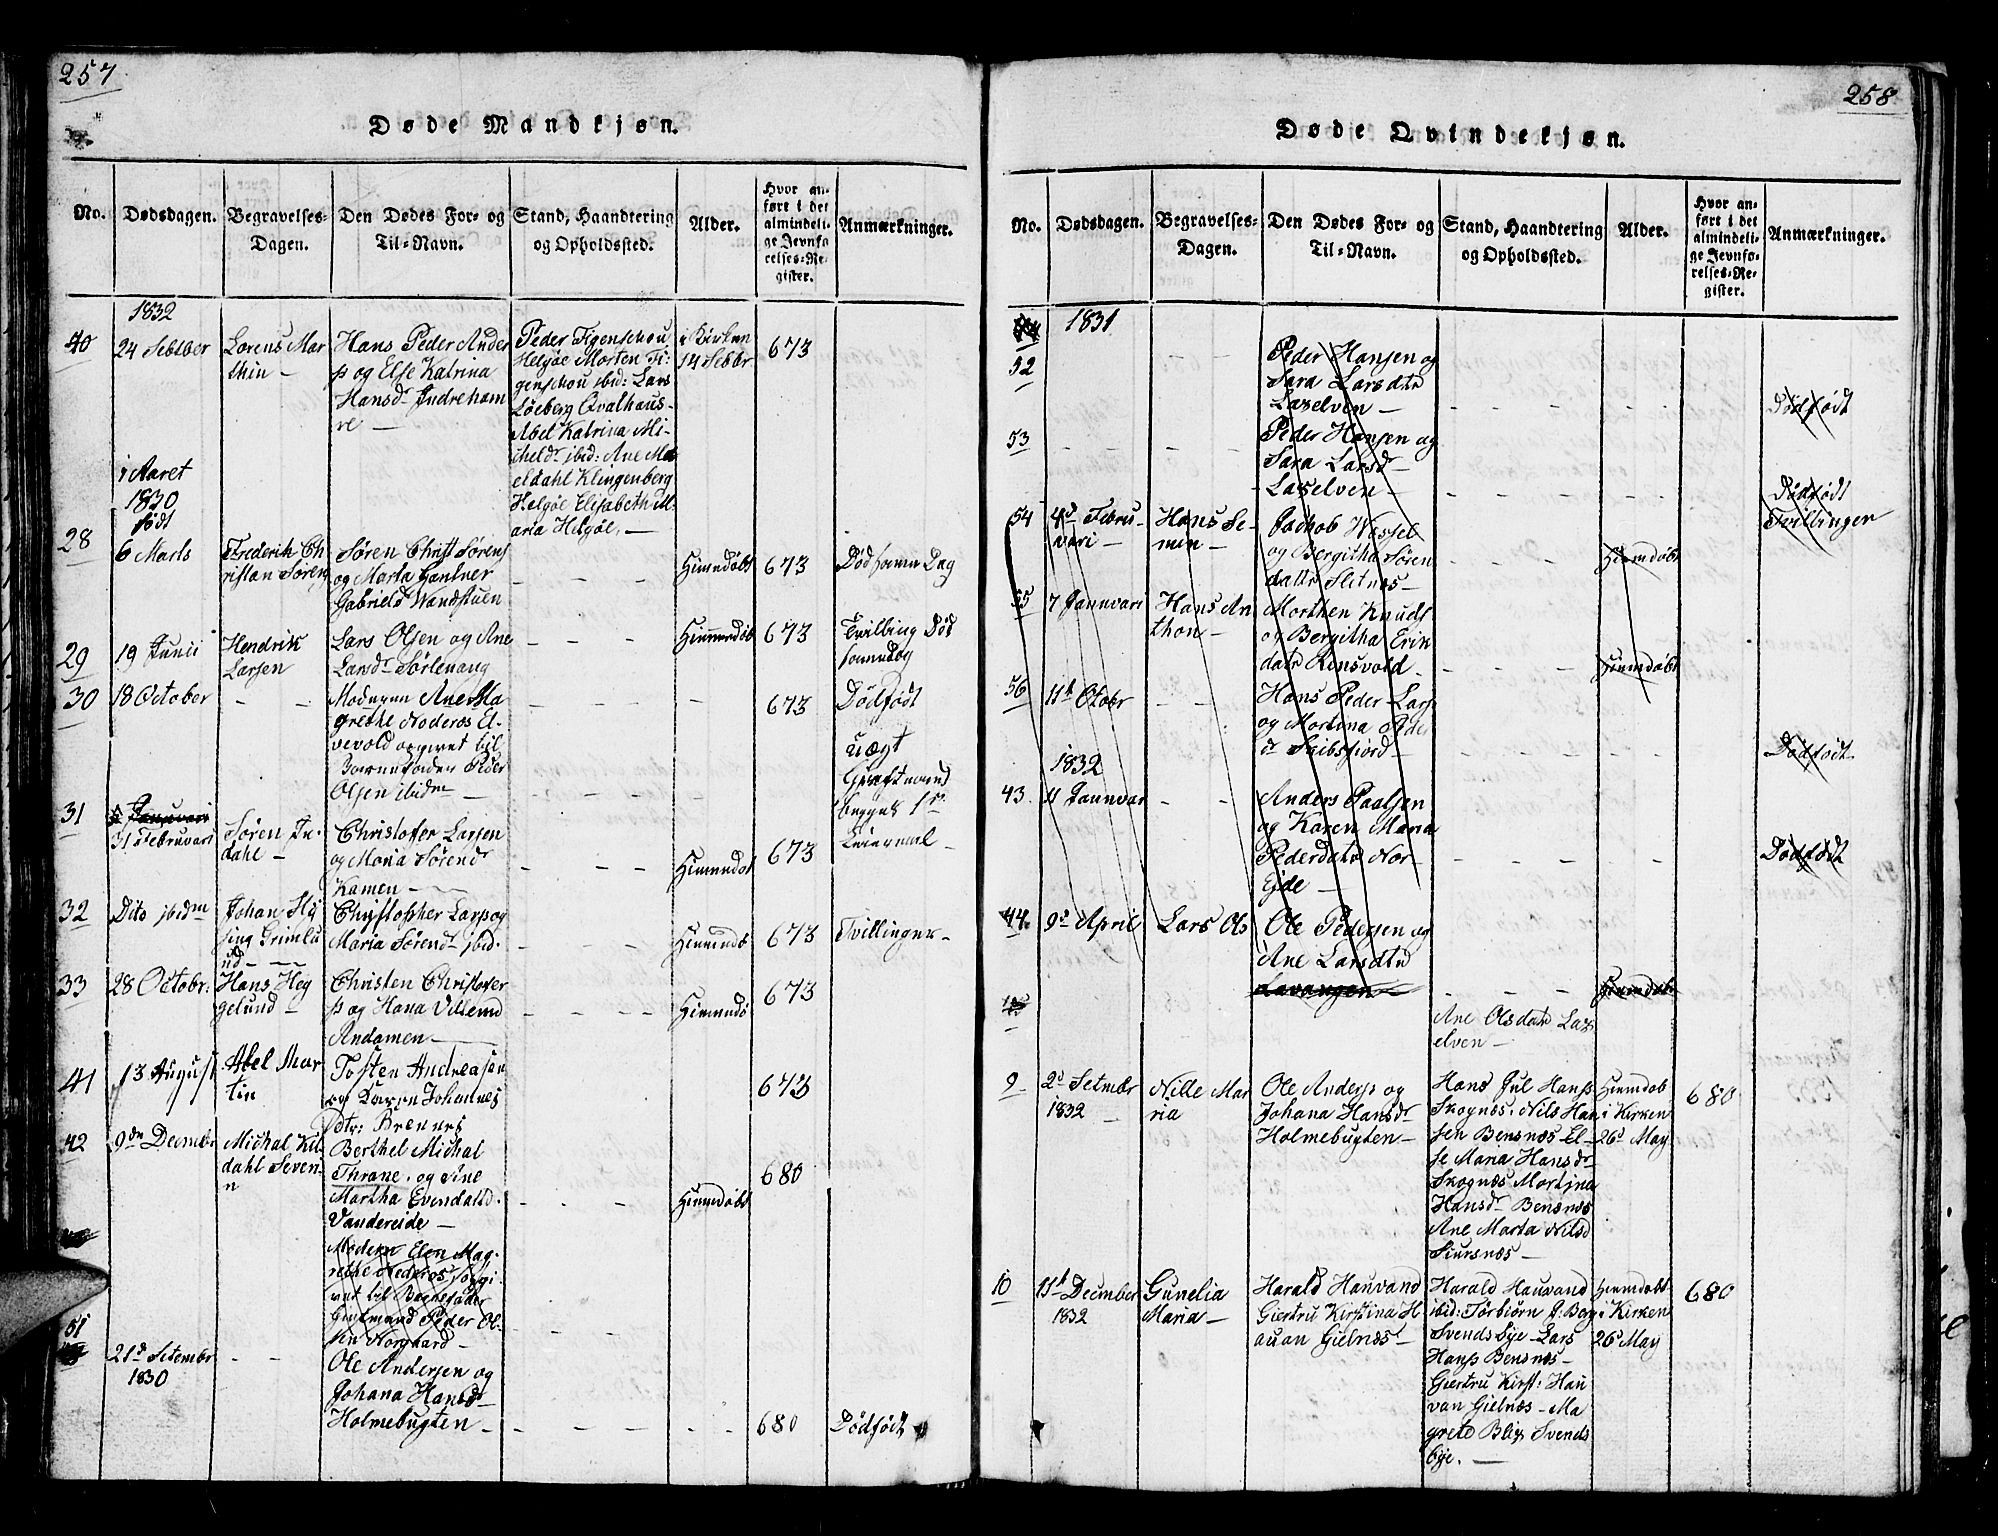 257
Døde Mandkjøn.
No.
Dødsdagen.
Begravelses-
Dagen.
Den Dødes For- og
Til-Navn.
Stand, Haandtering
og Opholdssted.
Alder.
Hvor an-
ført i det
almindeli-
ge Jevnfø
relses-Re-
gister.
Anmærkninger.
1832
40
24 Setbber
Lorens Mar
thin -
Hans Peder Ander
og Else Katrina
Hansd Indreham
re -
Peder Figenschou
Helgøe Morten Fi-
genschou ibid: Lars
Løeberg Qvalhaus-
Abel Katrina Mi-
cheldr ibid: Ane Me
eldahl Klingenberg
Helgøe Elisabeth M-
aria Helgøe. -
i Kirken
14 Sebbr
673
i Aaret
1830
født
28
6 Marts
Frederik Ch
ristian Søren
Søren Christ Sørens
og Marta Gantner
Gabrield Wandstuen
Himdøbt
673
Død samme Dag
29
19 Junii
Hendrik
Larsen
Lars Olsen og Ane
Larsd Sørlenang
Himmedøb
673
Tvilling Død
30
18 October
- -
Moderen Ane Ma
grethe Noderos El-
vevold opgivet til
Barnefader Peder
Olsen ibidm -
673
Dødfødt
uægt
begges 1ste
Leiermal -
31
5 Januvari
31 Februvari
Søren Ju-
dahl -
Christofer Larsen
og Maria Sørend
Kamen -
Himmdøt
673
32
Dito ibidm
Johan Hy
sing Grimlu
nd -
Christopher Larsog
Maria Sørend ibid.
Himmdø
673
Tvillinger-
33
28 Octobr:
Hans Heg
gelund -
Christen Christofer
og Hana Villumd
Andamen -
Himmdø
673
41
13 August
Abel Mar
tin
Tosten Andreasen
og Karen Johannes
Dtr: Brennes
673
42
9de Decmbr
Michal Kil
dahl Severi-
n
Berthel Michal
Thrane. og Ane
Martha Evendatsd.
Vandereide -
Himmdøbt
680
Modern Elen Mag-
rethe Nederos, opgi-
vet til Barnefader
Giftmand Peder Ol-
sen Norgaard -
51
21d Setembr
1830
Ole Andersen og
Johana Hansd
Holmebugten -
680
Dødfødt
258
Døde Qvindekjøn.
No.
Dødsdagen.
Begravelses-
Dagen.
Den Dødes For- og
Til-Navn.
Stand, Haandtering
og Opholdssted.
Alder.
Hvor an-
ført i det
almindeli-
ge Jevnfø-
relses-Re-
gister.
Anmærkninger.
1831
52
Peder Hansen og
Sara Larsdtr
Laxelven -
Dødfødt
53
Peder Hansen og
Sara Larsd
Laxelven -
Dødfødt
Tvillinger
54
4d Febru-
vari -
Hans Se-
men -
Jachob Wessel
og Bergitha Søren
datr Sletnæs -
Himmdøbt
55
7 Januvari
Hans An
thon -
Morthen Knuds
og Bergitha Erik
datr Rensvold -
Himmdøbt
56
11t Otobr
Hans Peder Lars
og Mortina Pede
dr Saibsfjord -
Dødfødt
1832
43.
11 Januvar
- -
Anders Paalsen
og Karen Maria
Pederdatr Nor-
Ejde -
Dødfødt
44.
9d April
Lars Ols
Ole Pedersen og
Ane Larsdtr
Lavangen -
Himmdøbt
Ane Olsdatr Lax
elven -
9
2d Setmbr
1832
Nille Mar
ria
Ole Anders og
Johana Hansd
Holmebugten -
Hans Jul Hans
Skognæs. Nils Han
sen Bensnæs El-
se Maria Hansd
Skognæs Mortina
Hansd Bensnæs
Ane Marta Nilsd
Siursnæs -
Himmdøb
i Kirken
26d May
680
10
11t December
1832
Gunelia
Maria -
Harald Hauvand
Giertru Kirstina H
auan Gielnæs -
Harald Hauvand
ibid: Torbiørn J: Berg
Svendsbye - Lars
Hans Bensnæs -
Giertru Kirst: Hau
van Gielnæs - Ma
grete Blix Svends
bye. -
Himmdøbt
i Kirken
26d May
680